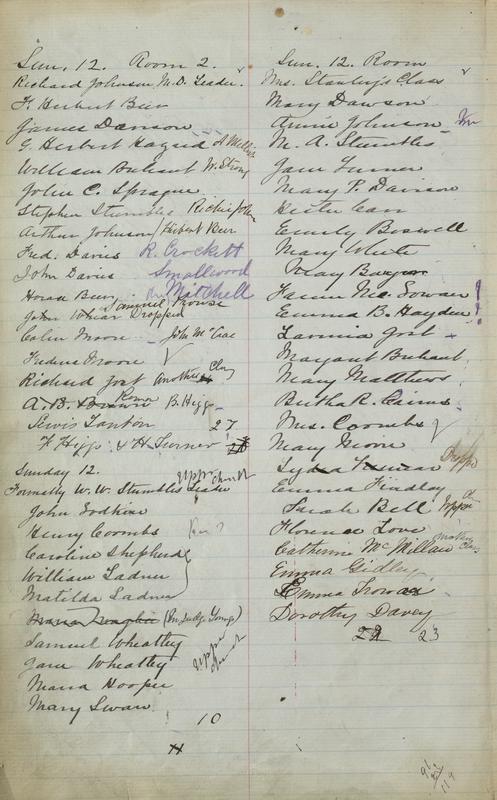 Sun. 12. Room 2.
Richard Johnson M.D. Leader.
F. Herbert Beer
James Dawson
G. Herbert Haszard A
William Brehaut W. Strong
John C. Sprague
Stephen Stumbles Richie John
Arthur Johnson Herbert Beer
Fred. Davies R. Crockett
John Davies Smallwood
Horace Beer Mitchell
Sammel Prowse
John Dropped
Colin Moore John McCrae
Frederic Moore
Richard Jost Another Class
A. B. Brown Room B. Higgs
Lewis Tanton 27
F Higgs & H Turner
Sunday 12. Upper Church
Formally W. W. Stumbles Leader
John
Henry Coombs
Caroline Shepherd
William Ladner
Matilda Ladner
Samuel Wheatley
Jane Wheatley Upper Church
Maria Hooper
Mary Swan
10
Sun. 12. Room
Mrs. Stanley's Class
Mary Dawson
Annie Johnson
M. A. Stumbles
Jane Turner
Mary P. Davison
Carr
Emily Boswell
Mary White
Mary
Fannie McGowan
Emma B. Hayden
Lavinia Jost
Margaret Brehaut
Mary Matthews
Bertha R. Cairns
Mrs. Coombs
Mary Moore
Lydia
Emma Findley
Sarah Bell Upper Ch
Florence Love
Catherine McMillan Mother Class
Emma Gidley
Emma Trowan
Dorothy Davey
22 23
91
114